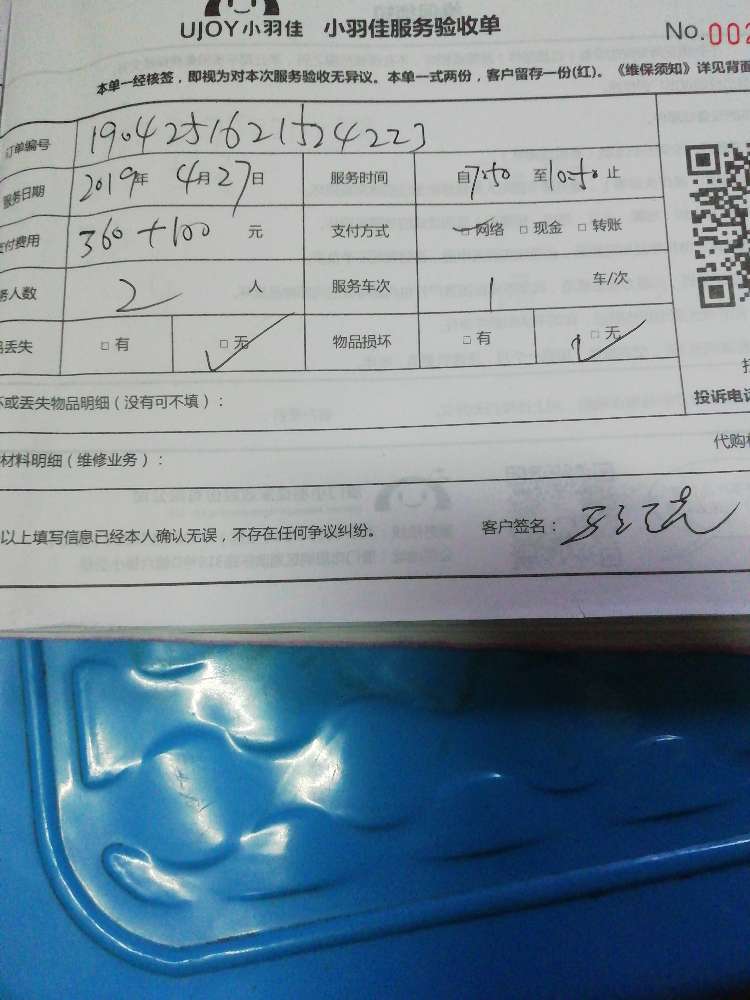 UJOY小羽佳 小羽佳服务验收单
No.002
本单一经核签，即视为对本次服务验收无异议。本单一式两份，客户留存一份(红)。《维保须知》详见背面
订单编号 190425162152422З
服务日期 2019年 4月27日 服务时间 自7:50 至10:50止
支付费用 360+100 元 支付方式 网络 □ 现金 □ 转账
务人数 2 人 服务车次 1 车/次
品丢失 □ 有 □ 无 物品损坏 □ 有 □ 无
坏或丢失物品明细（没有可不填）：
投诉电话
材料明细（维修业务）：
代购
以上填写信息已经本人确认无误，不存在任何争议纠纷。 客户签名：